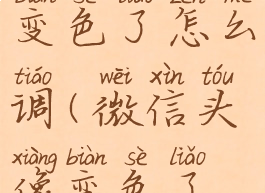 biàn sè liǎo zěn me
变色了怎么
tiáo wēi xìn tóu
调(微信头
xiàng biàn sè liǎo
像变色了